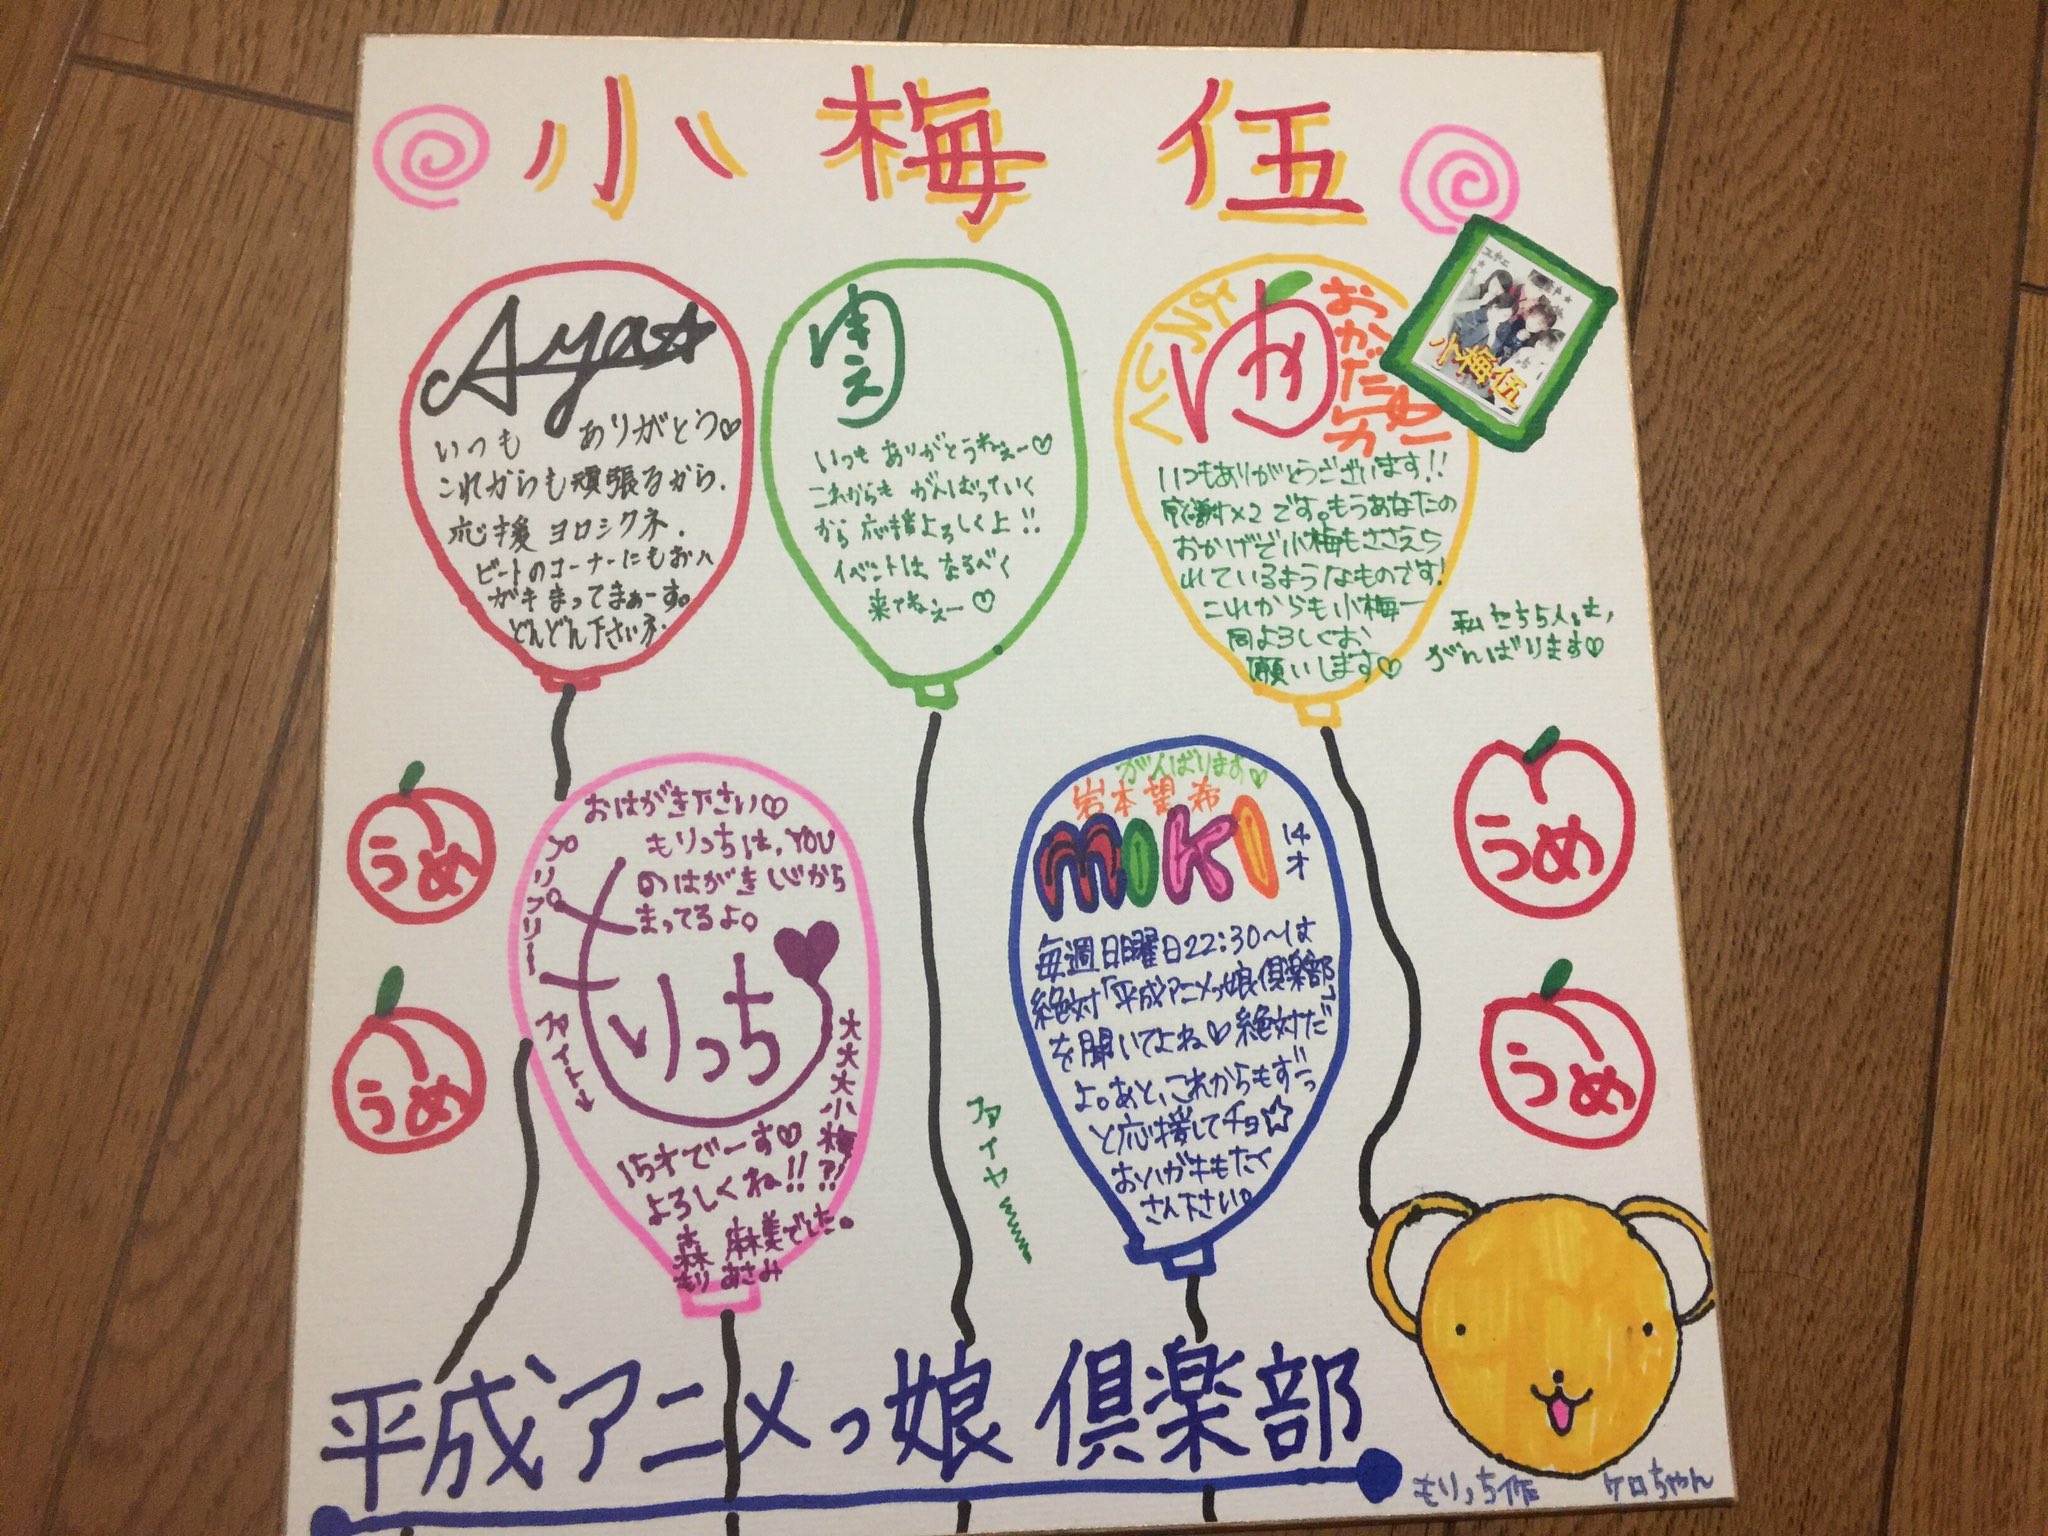 小梅伍
Aya☆
いつも ありがとう♡
これからも頑張るから、
応援ヨロシクネ。
ビートのコーナーにもおハ
ガキまってまぁーす。
どんどん下さいネ。
いつも ありがとうねぇー♡
これからも がんばっていく
から 応援よろしく上!!
イベントは なるべく
来てねぇー♡
おかだ
いつもありがとうございます!!
感謝×2です。もうあなたの
おかげで小梅もささえら
れているようなものです!
これからも小梅一
同よろしくお
願いします♡
私たち5人も、
がんばります♡
小梅伍
うめ
うめ
うめ
うめ
おはがき下さい♡
もりっちは、YOU
のはがき 心から
まってるよ。
プリプリー
ファイト
もりっち
大大大小梅?!
15才でーす♡
よろしくね!!
森 麻美でした。
もり あさみ
ファイヤー
がんばります♡
岩本望希
MIKI
14才
毎週日曜日22:30〜は
絶対「平成アニメっ娘倶楽部」
を聞いてよね♡絶対だ
よ。あと、これからもずーっ
と応援してチョ☆
おハガキもたく
さん下さい。
平成アニメっ娘倶楽部
もりっち作 ケロちゃん